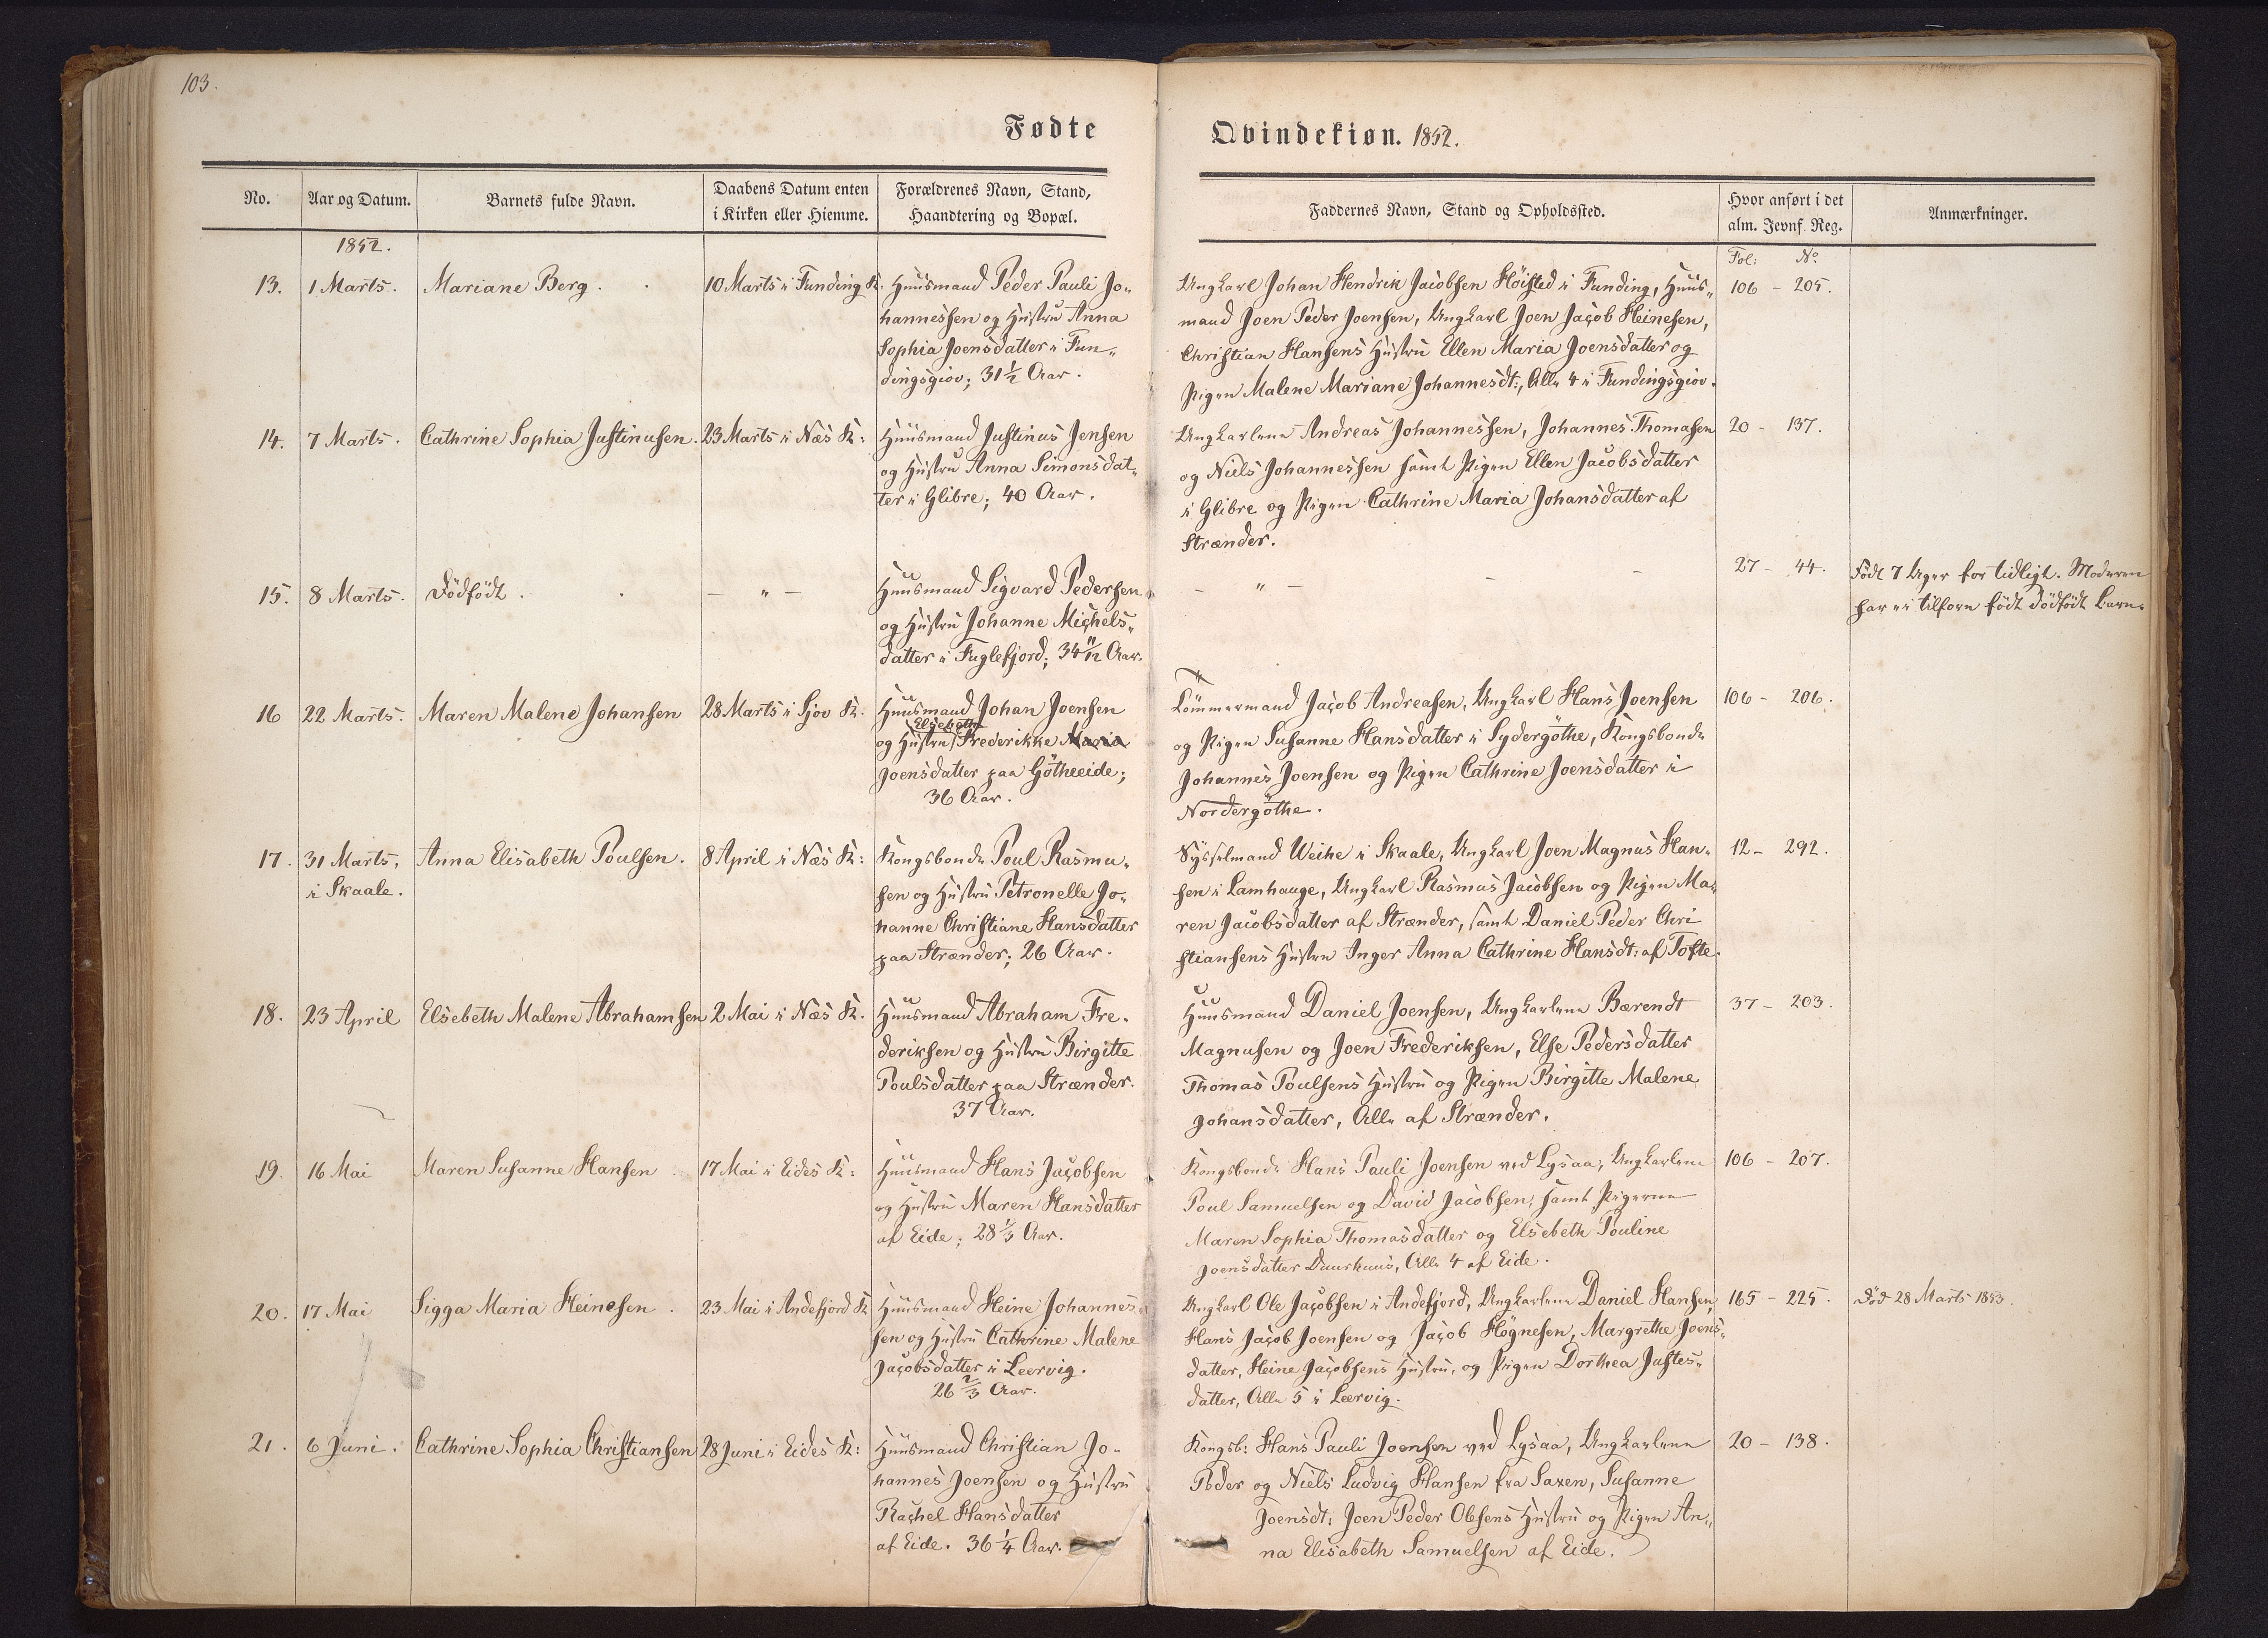 103.
Fødte
Qvindekiøn. 1852.
No.
Aar og Datum.
Barnets fulde Navn.
Daabens Datum enten
i Kirken eller Hiemme.
Forældrenes Navn, Stand,
Haandtering og Bopæl.
Faddernes Navn, Stand og Opholdssted.
Hvor anført i det
alm. Jevnf. Reg.
Anmærkninger.
1852.
Fol: No.
13.
1 Marts.
Mariane Berg.
10 Marts i Funding K.
Huusmand Peder Pauli Jo-
hannessen og Hustru Anna
Sophia Joensdatter i Fun-
dingsgiov; 31 1/2 Aar.
Ungkarl Johan Hendrik Jacobsen Höisted i Funding, Huus-
mand Joen Peder Joensen, Ungkarl Joen Jacob Heinesen,
Christian Hansens Hustru Ellen Maria Joensdatter og
Pigen Malene Mariane Johannesdt:, Alle 4 i Fundingsgiov.
106 - 205.
14.
7 Marts.
Cathrine Sophia Justinusen.
23 Marts i Næs K:
Huusmand Justinus Jensen
og Hustru Anna Simonsdat-
ter i Glibre; 40 Aar.
Ungkarlene Andreas Johannessen, Johannes Thomasen
og Niels Johannessen samt Pigen Ellen Jacobsdatter
i Glibre og Pigen Cathrine Maria Johansdatter af
Strænder.
20 - 137.
15.
8 Marts.
Dödfödt.
- " -
Huusmand Sigvard Pedersen
og Hustru Johanne Michels-
datter i Fuglefjord; 34 11/12 Aar.
- " - - -
27 - 44.
Födt 7 Uger for tidligt. Moderen
har ei tilforn födt dödfödt Barn.
16
22 Marts.
Maren Malene Johansen
28 Marts i Sjov K.
Huusmand Johan Joensen
Elsebeth
og Hustru Frederikke Maria
Joensdatter paa Götheeide;
36 Aar.
Tömmermand Jacob Andreasen, Ungkarl Hans Joensen
og Pigen Susanne Hansdatter i Sydergöthe, Kongsbonde
Johannes Joensen og Pigen Cathrine Joensdatter i
Nordergöthe.
106 - 206.
17.
31 Marts,
i Skaale.
Anna Elisabeth Poulsen.
8 April i Næs K:
Kongsbonde Poul Rasmu-
sen og Hustru Petronelle Jo-
hanne Christiane Hansdatter
paa Strænder; 26 Aar.
Sysselmand Weihe i Skaale, Ungkarl Joen Magnus Han-
sen i Lamhauge, Ungkarl Rasmus Jacobsen og Pigen Ma-
ren Jacobsdatter af Strænder, samt Daniel Peder Chri
stiansens Hustru Inger Anna Cathrine Hansdt: af Tofte.
12 - 292.
18.
23 April
Elsebeth Malene Abrahamsen
2 Mai i Næs K.
Huusmand Abraham Fre-
deriksen og Hustru Birgitte
Poulsdatter paa Strænder.
37 Aar.
Huusmand Daniel Joensen, Ungkarlene Bærendt
Magnusen og Joen Frederiksen, Else Pedersdatter
Thomas Poulsens Hustru og Pigen Birgitte Malene
Johansdatter, Alle af Strænder.
37 - 203.
19.
16 Mai
Maren Susanne Hansen
17 Mai i Eides K:
Huusmand Hans Jacobsen
og Hustru Maren Hansdatter
af Eide; 28 1/3 Aar.
Kongsbonde Hans Pauli Joensen ved Lysaa, Ungkarlene
Poul Samuelsen og David Jacobsen, samt Pigerne
Maren Sophia Thomasdatter og Elsebeth Pouline
Joensdatter Duurhuus, Alle 4 af Eide.
106 - 207.
20.
17 Mai
Sigga Maria Heinesen.
23 Mai i Andefjord K
Huusmand Heine Johannes-
sen og Hustru Cathrine Malene
Jacobsdatter i Leervig.
26 2/3 Aar.
Ungkarl Ole Jacobsen i Andefjord, Ungkarlene Daniel Hansen,
Hans Jacob Joensen og Jacob Högnesen, Margrethe Joens-
datter, Heine Jacobsens Hustru, og Pigen Dorthea Justes-
datter, Alle 5 i Leervig.
165 - 225.
Död 28 Marts 1853.
21.
6 Juni.
Cathrine Sophia Christiansen
28 Juni i Eides K:
Huusmand Christian Jo-
hannes Joensen og Hustru
Rachel Hansdatter
af Eide. 36 1/4 Aar.
Kongsb: Hans Pauli Joensen ved Lysaa, Ungkarlene
Peder og Niels Ludvig Hansen fra Saxen, Susanne
Joensdt: Joen Peder Olesens Hustru og Pigen An-
na Elisabeth Samuelsen af Eide.
20 - 138.